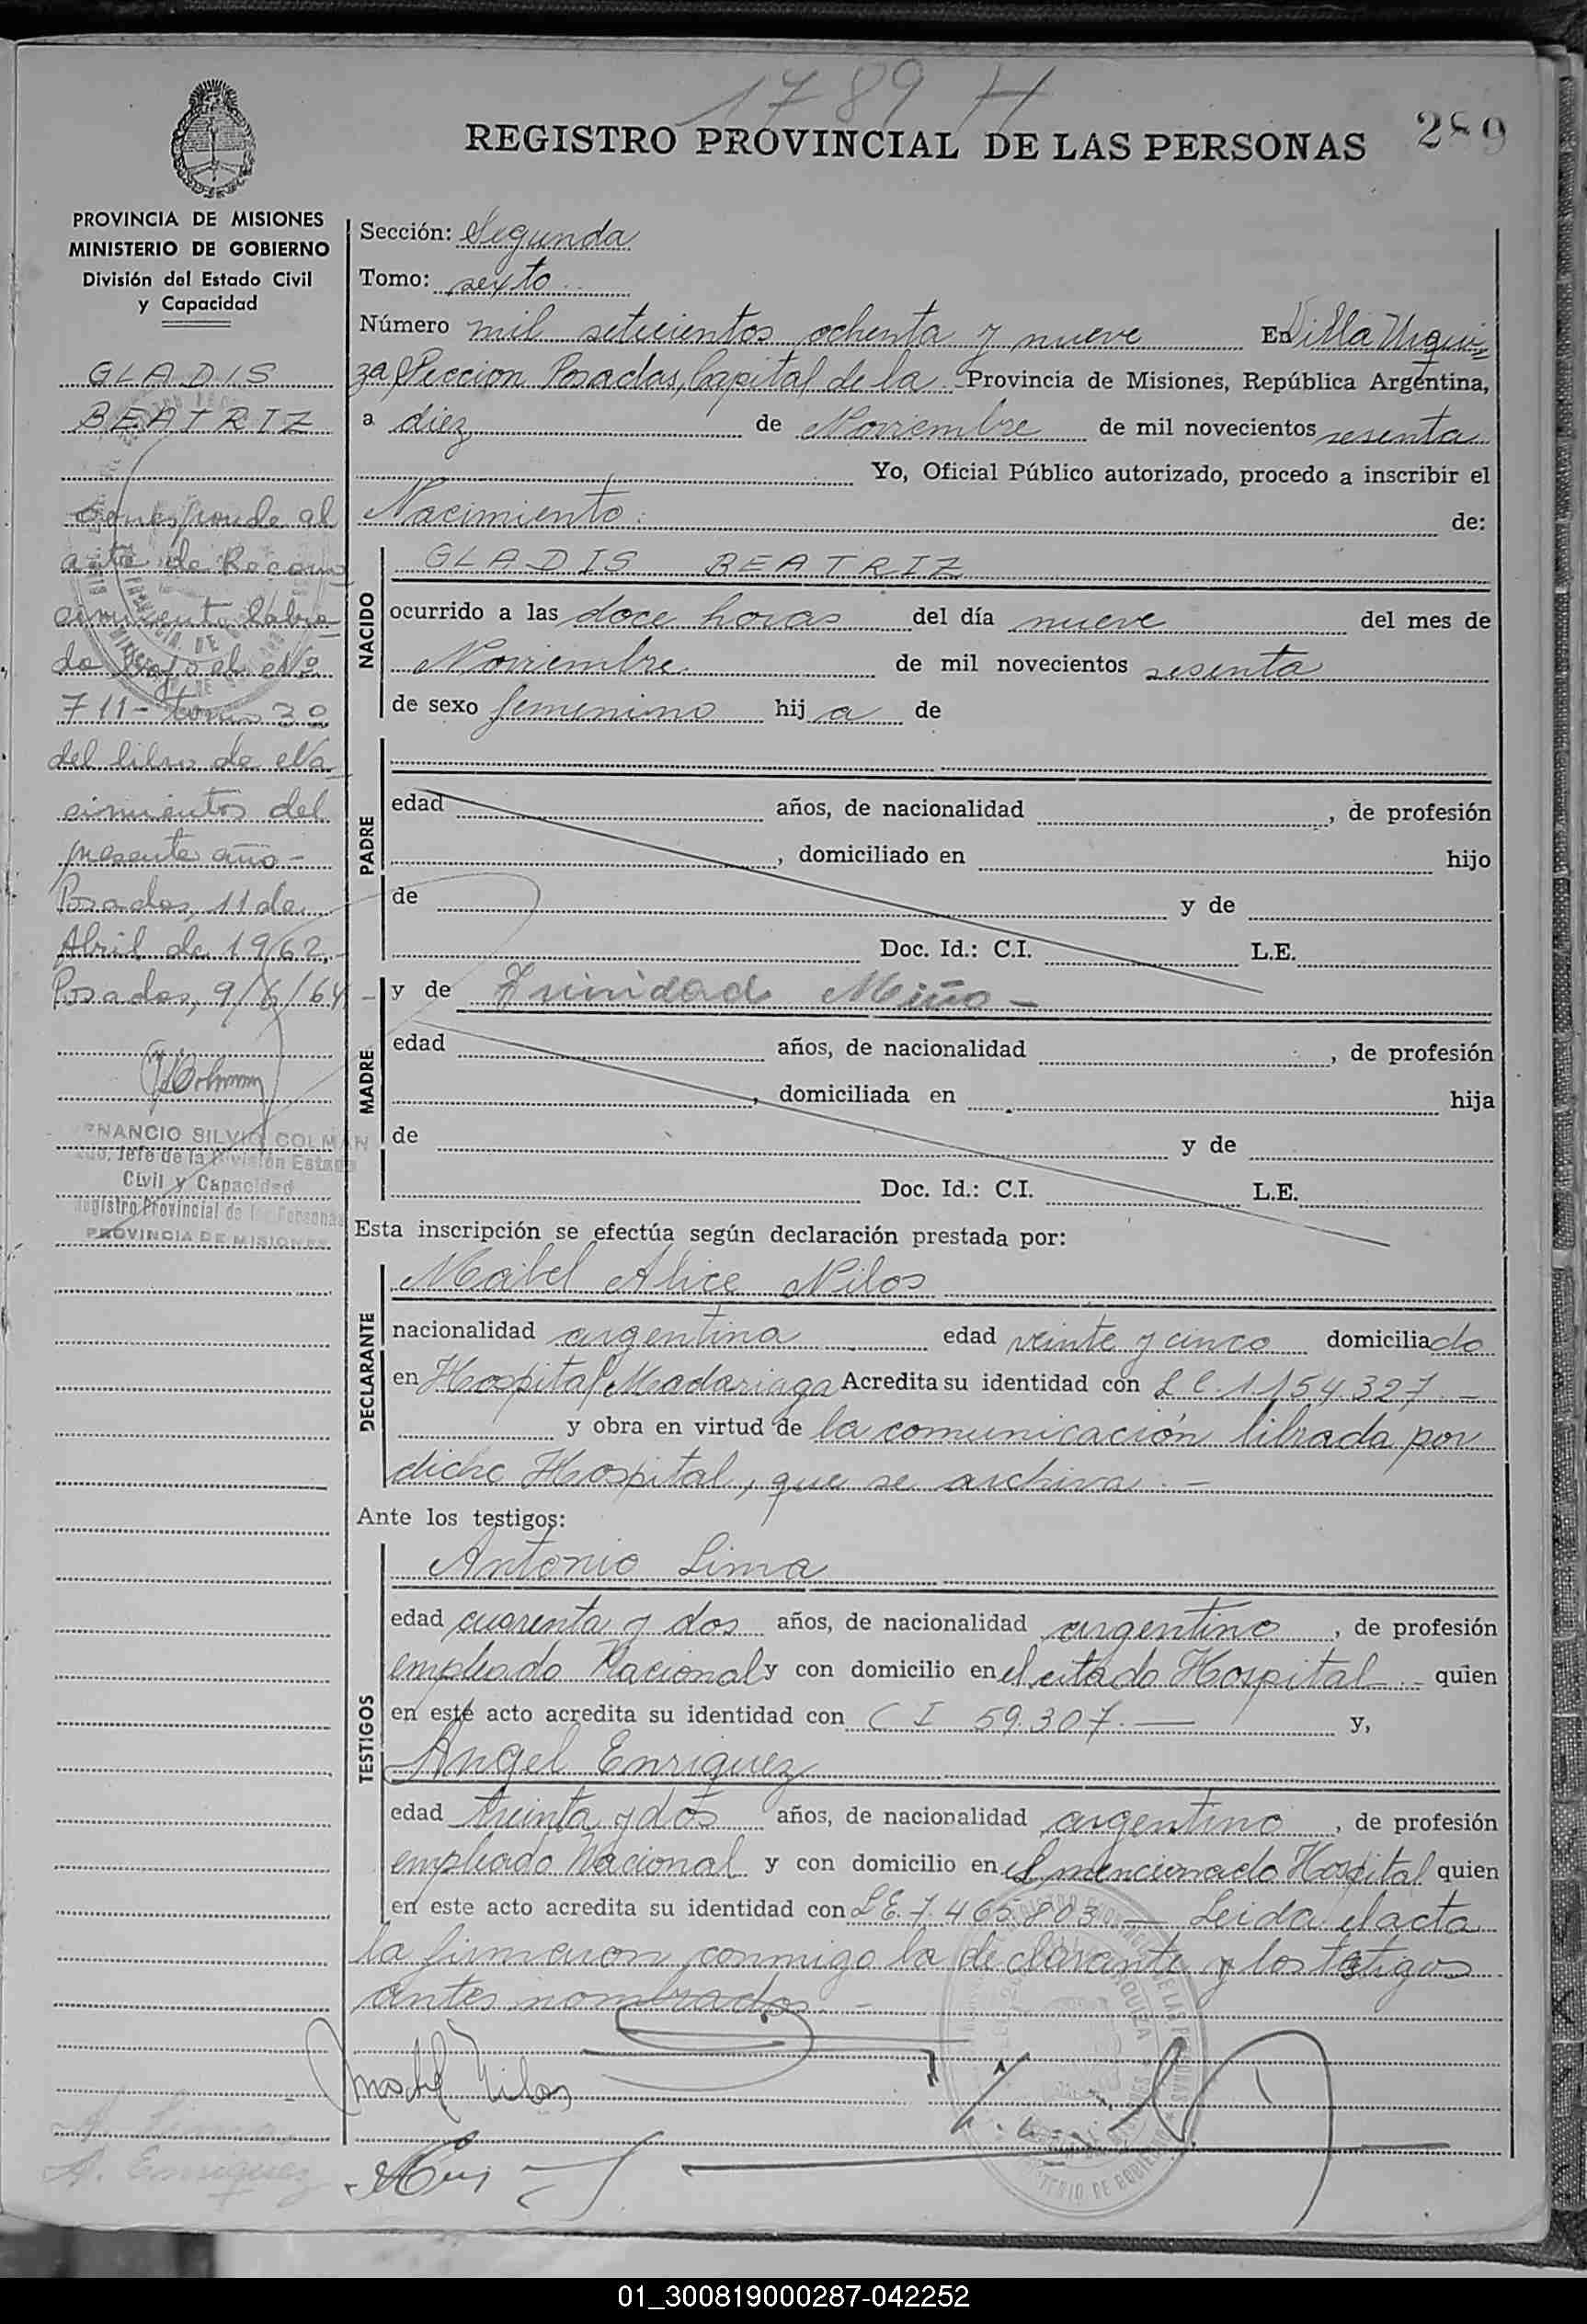 1789 H
REGISTRO PROVINCIAL DE LAS PERSONAS
289
PROVINCIA DE MISIONES
MINISTERIO DE GOBIERNO
División del Estado Civil
y Capacidad
GLADIS
BEATRIZ
Corresponde al
acta de Recono
cimiento labra
do bajo el Nº
711 - tomo 3º
del libro de Na
cimientos del
presente año -
Posadas, 11 de
Abril de 1962.-
Posadas, 9/6/64 -
NANCIO SILVIO COLMAN
Jefe de la División Estado
Civil y Capacidad
Registro Provincial de las Personas
PROVINCIA DE MISIONES
A. Lima
A. Enriquez
Sección: Segunda
Tomo: sexto
Número mil setecientos ochenta y nueve En Villa Urqui=
za, Sección Posadas, Capital de la Provincia de Misiones, República Argentina,
a diez de Noviembre de mil novecientos sesenta
Yo, Oficial Público autorizado, procedo a inscribir el
Nacimiento: de:
NACIDO
GLADIS BEATRIZ
ocurrido a las doce horas del día nueve del mes de
Noviembre de mil novecientos sesenta
de sexo femenino hija de
PADRE
edad años, de nacionalidad , de profesión
, domiciliado en hijo
de y de
Doc. Id.: C.I. L.E.
MADRE
y de Trinidad Miño -
edad años, de nacionalidad , de profesión
, domiciliada en hija
de y de
Doc. Id.: C.I. L.E.
Esta inscripción se efectúa según declaración prestada por:
DECLARANTE
Mabel Alice Nilos
nacionalidad argentina edad veinte y cinco domiciliado
en Hospital Madariaga Acredita su identidad con L C. 1.154.327. -
y obra en virtud de la comunicación librada por
dicho Hospital, que se archiva. -
Ante los testigos:
TESTIGOS
Antonio Lima
edad cuarenta y dos años, de nacionalidad argentino , de profesión
empleado Nacional y con domicilio en el citado Hospital - quien
en este acto acredita su identidad con C I 59.307. — y,
Angel Enriquez
edad treinta y dos años, de nacionalidad argentino , de profesión
empleado Nacional y con domicilio en el mencionado Hospital quien
en este acto acredita su identidad con L E. 7.465.803 — Leida el acta
la firmaron conmigo la declarante y los testigos
antes nombrados. -
Mabel Nilos
01_300819000287-042252